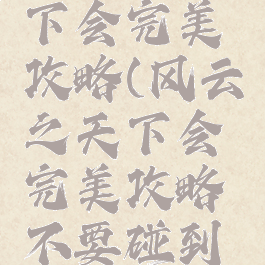 下会完美
攻略(风云
之天下会
完美攻略
不要碰到